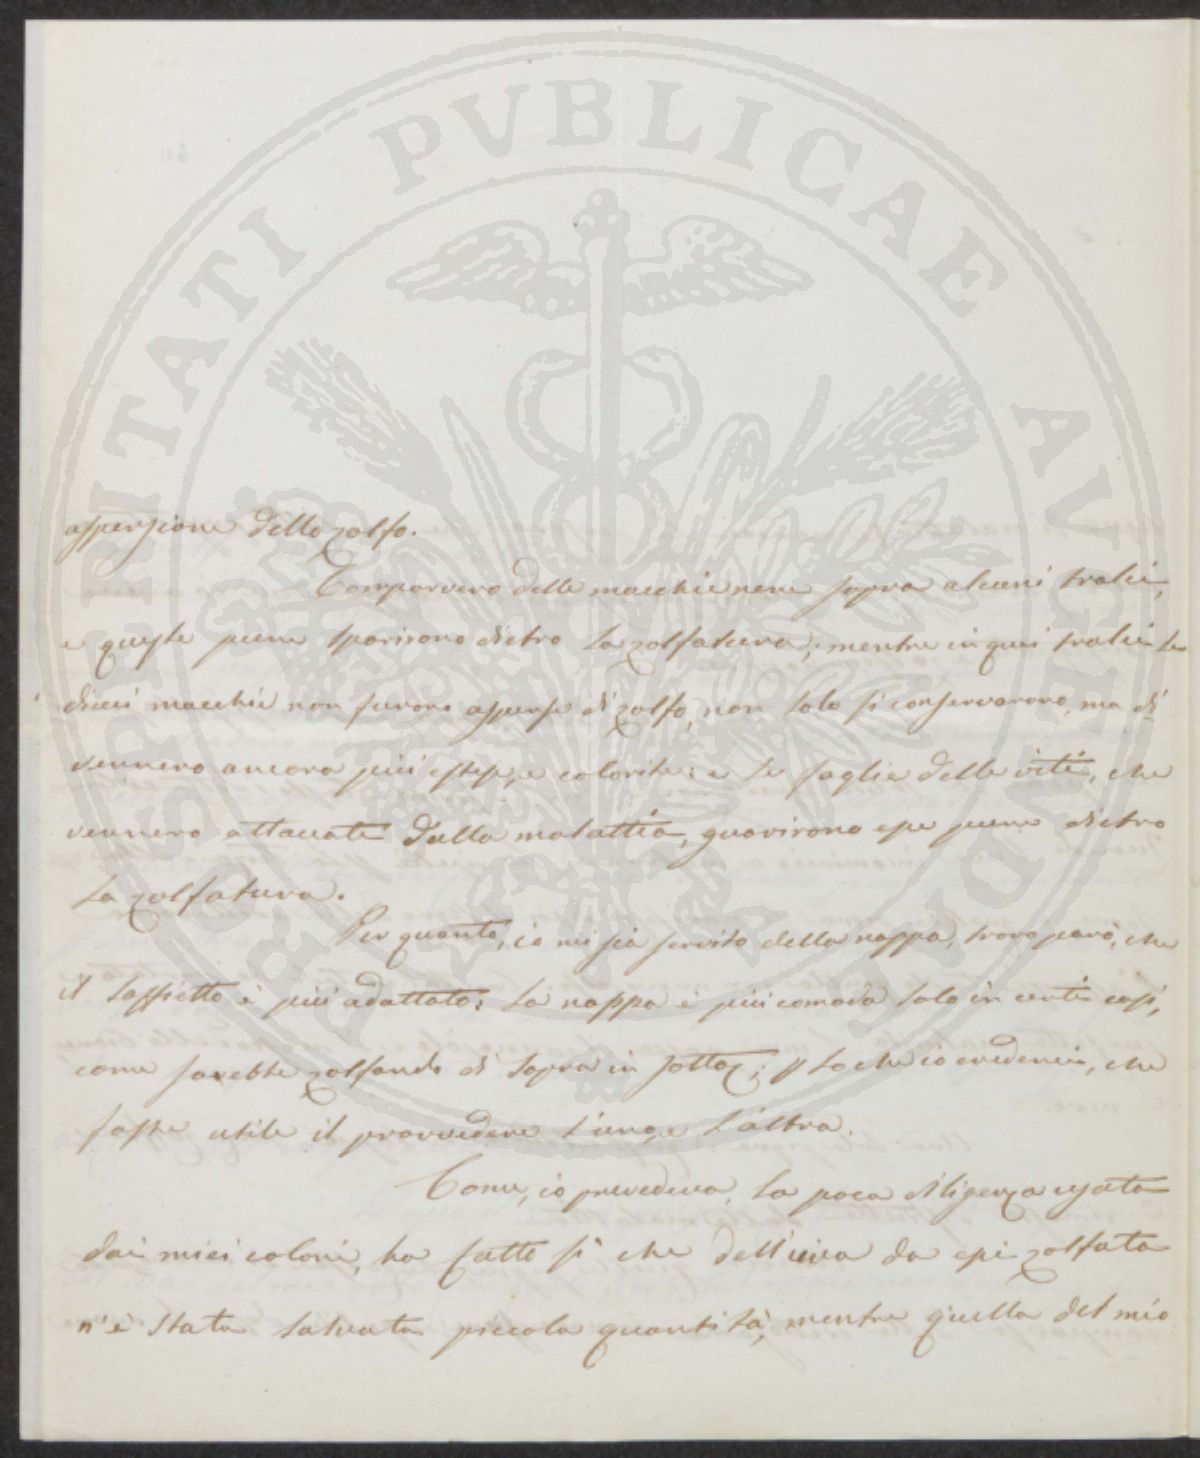 PROSPERITATI PUBLICAE AUGENDAE
aspersione dello zolfo.
Comparvero delle macchie nere sopra alcuni tralci,
e queste pure sparirono dietro la zolfatura; mentre in quei tralci le
dicui macchie non furono asperse di zolfo, non solo si conservarono, ma di
vennero ancora più estese, e colorite; e le foglie delle viti, che
vennero attaccate dalla malattia, guarirono esse pure dietro
la zolfatura.
Per quanto, io mi sia servito della nappa, trovo però, che
il soffietto è più adattato; la nappa è più comoda solo in certi casi,
come sarebbe zolfando di sopra in sotto; lo che io crederei, che
fosse utile il provvedere l'uno, e l'altra.
Come, io prevedeva, la poca diligenza usata
dai miei coloni, ha fatto sì che dell'uva da essi zolfata
n'è stata salvata piccola quantità, mentre quella del mio